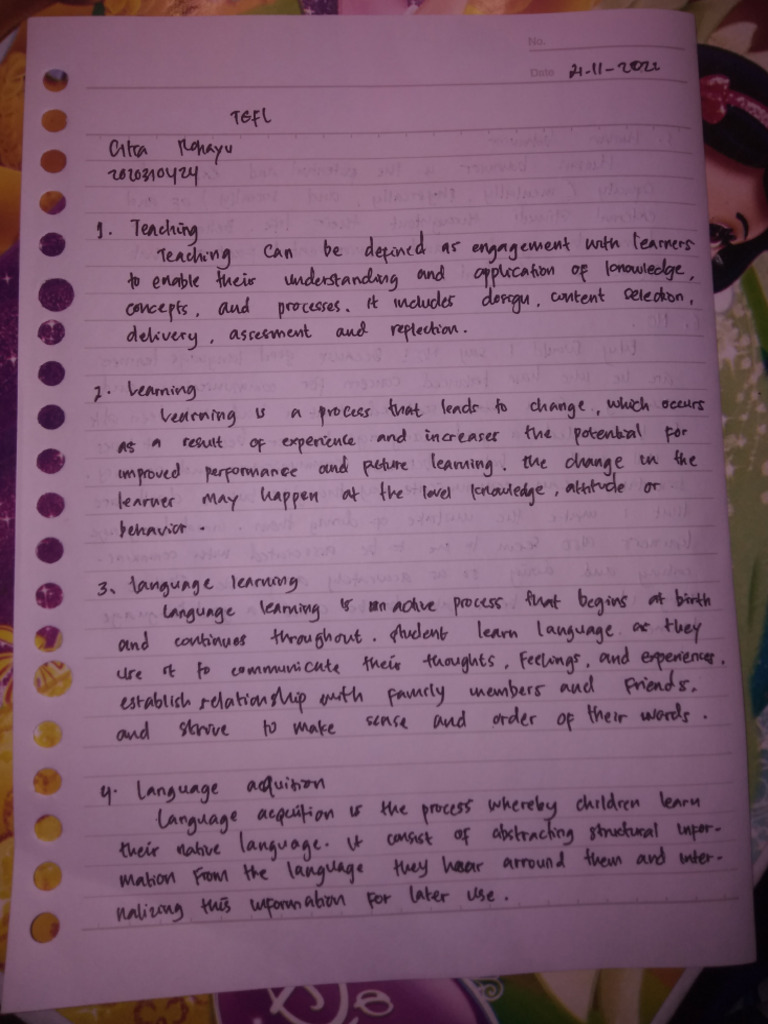 No.
Date 21-11-2022
TEFL
Citra Rahayu
2020310424
1. Teaching
Teaching can be defined as engagement with learners
to enable their understanding and application of knowledge,
concepts, and processes. it includes design, content selection,
delivery, assesment and replection.
2. Learning
Learning is a process that leads to change, which occurs
as a result of experience and increases the potential for
improved performance and future learning. the change in the
learner may happen at the level knowledge, attitude or
behavior.
3. Language learning
Language learning is an active process that begins at birth
and continues throughout. student learn language as they
use it to communicate their thoughts, feelings, and experiences,
establish relationship with family members and friends,
and strive to make sense and order of their words.
4. Language acquition
Language acquition is the process whereby children learn
their native language. it consist of abstracting structural infor-
mation from the language they hear arround them and inter-
nalizing this information for later use.